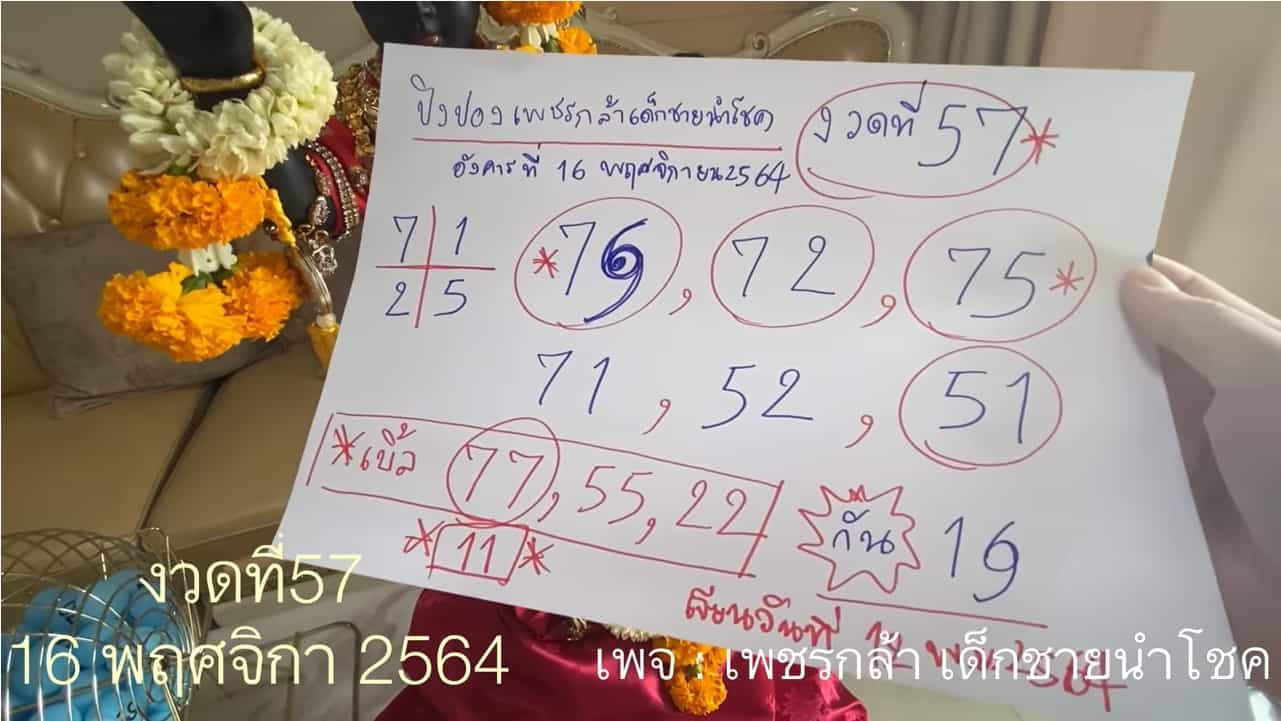 ปิงปองเพชรกล้าเด็กชายนำโชค
งวดที่ 57*
อังคารที่ 16 พฤศจิกายน 2564
7 1
2 5
*79, 72, 75*
71, 52, 51
*เบิ้ล 77, 55, 22
*11*
กัน 19
เขียนวันที่ 12
งวดที่57
16 พฤศจิกา 2564
เพจ : เพชรกล้า เด็กชายนำโชค